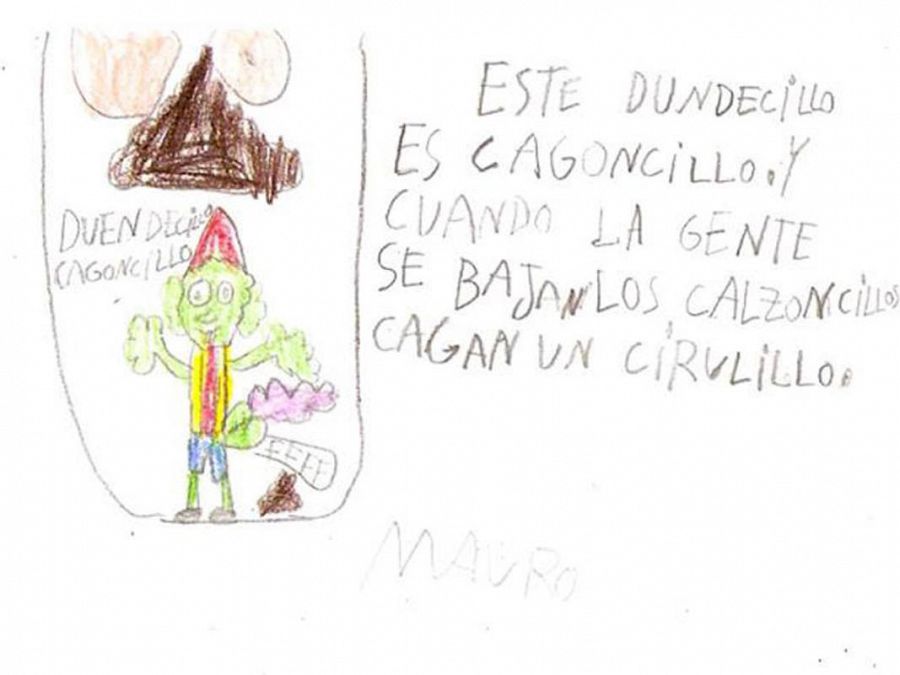 DUENDECILLO
CAGONCILLO
ESTE DUNDECILLO
ES CAGONCILLO. Y
CUANDO LA GENTE
SE BAJAN LOS CALZONCILLOS
CAGAN UN CIRULILLO.
MAURO